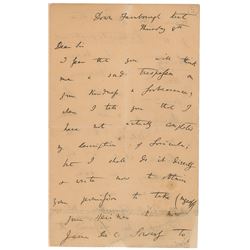 Down Farnborough Kent
Thursday 9th
Dear Sir
I fear that you will think
me a sad trespasser on
your kindness & forbearance,
when I tell you that I
have not actually completed
my description of
but I shall do it directly
& write now to
your permission to take
your specimen
James De C. Sowerby to